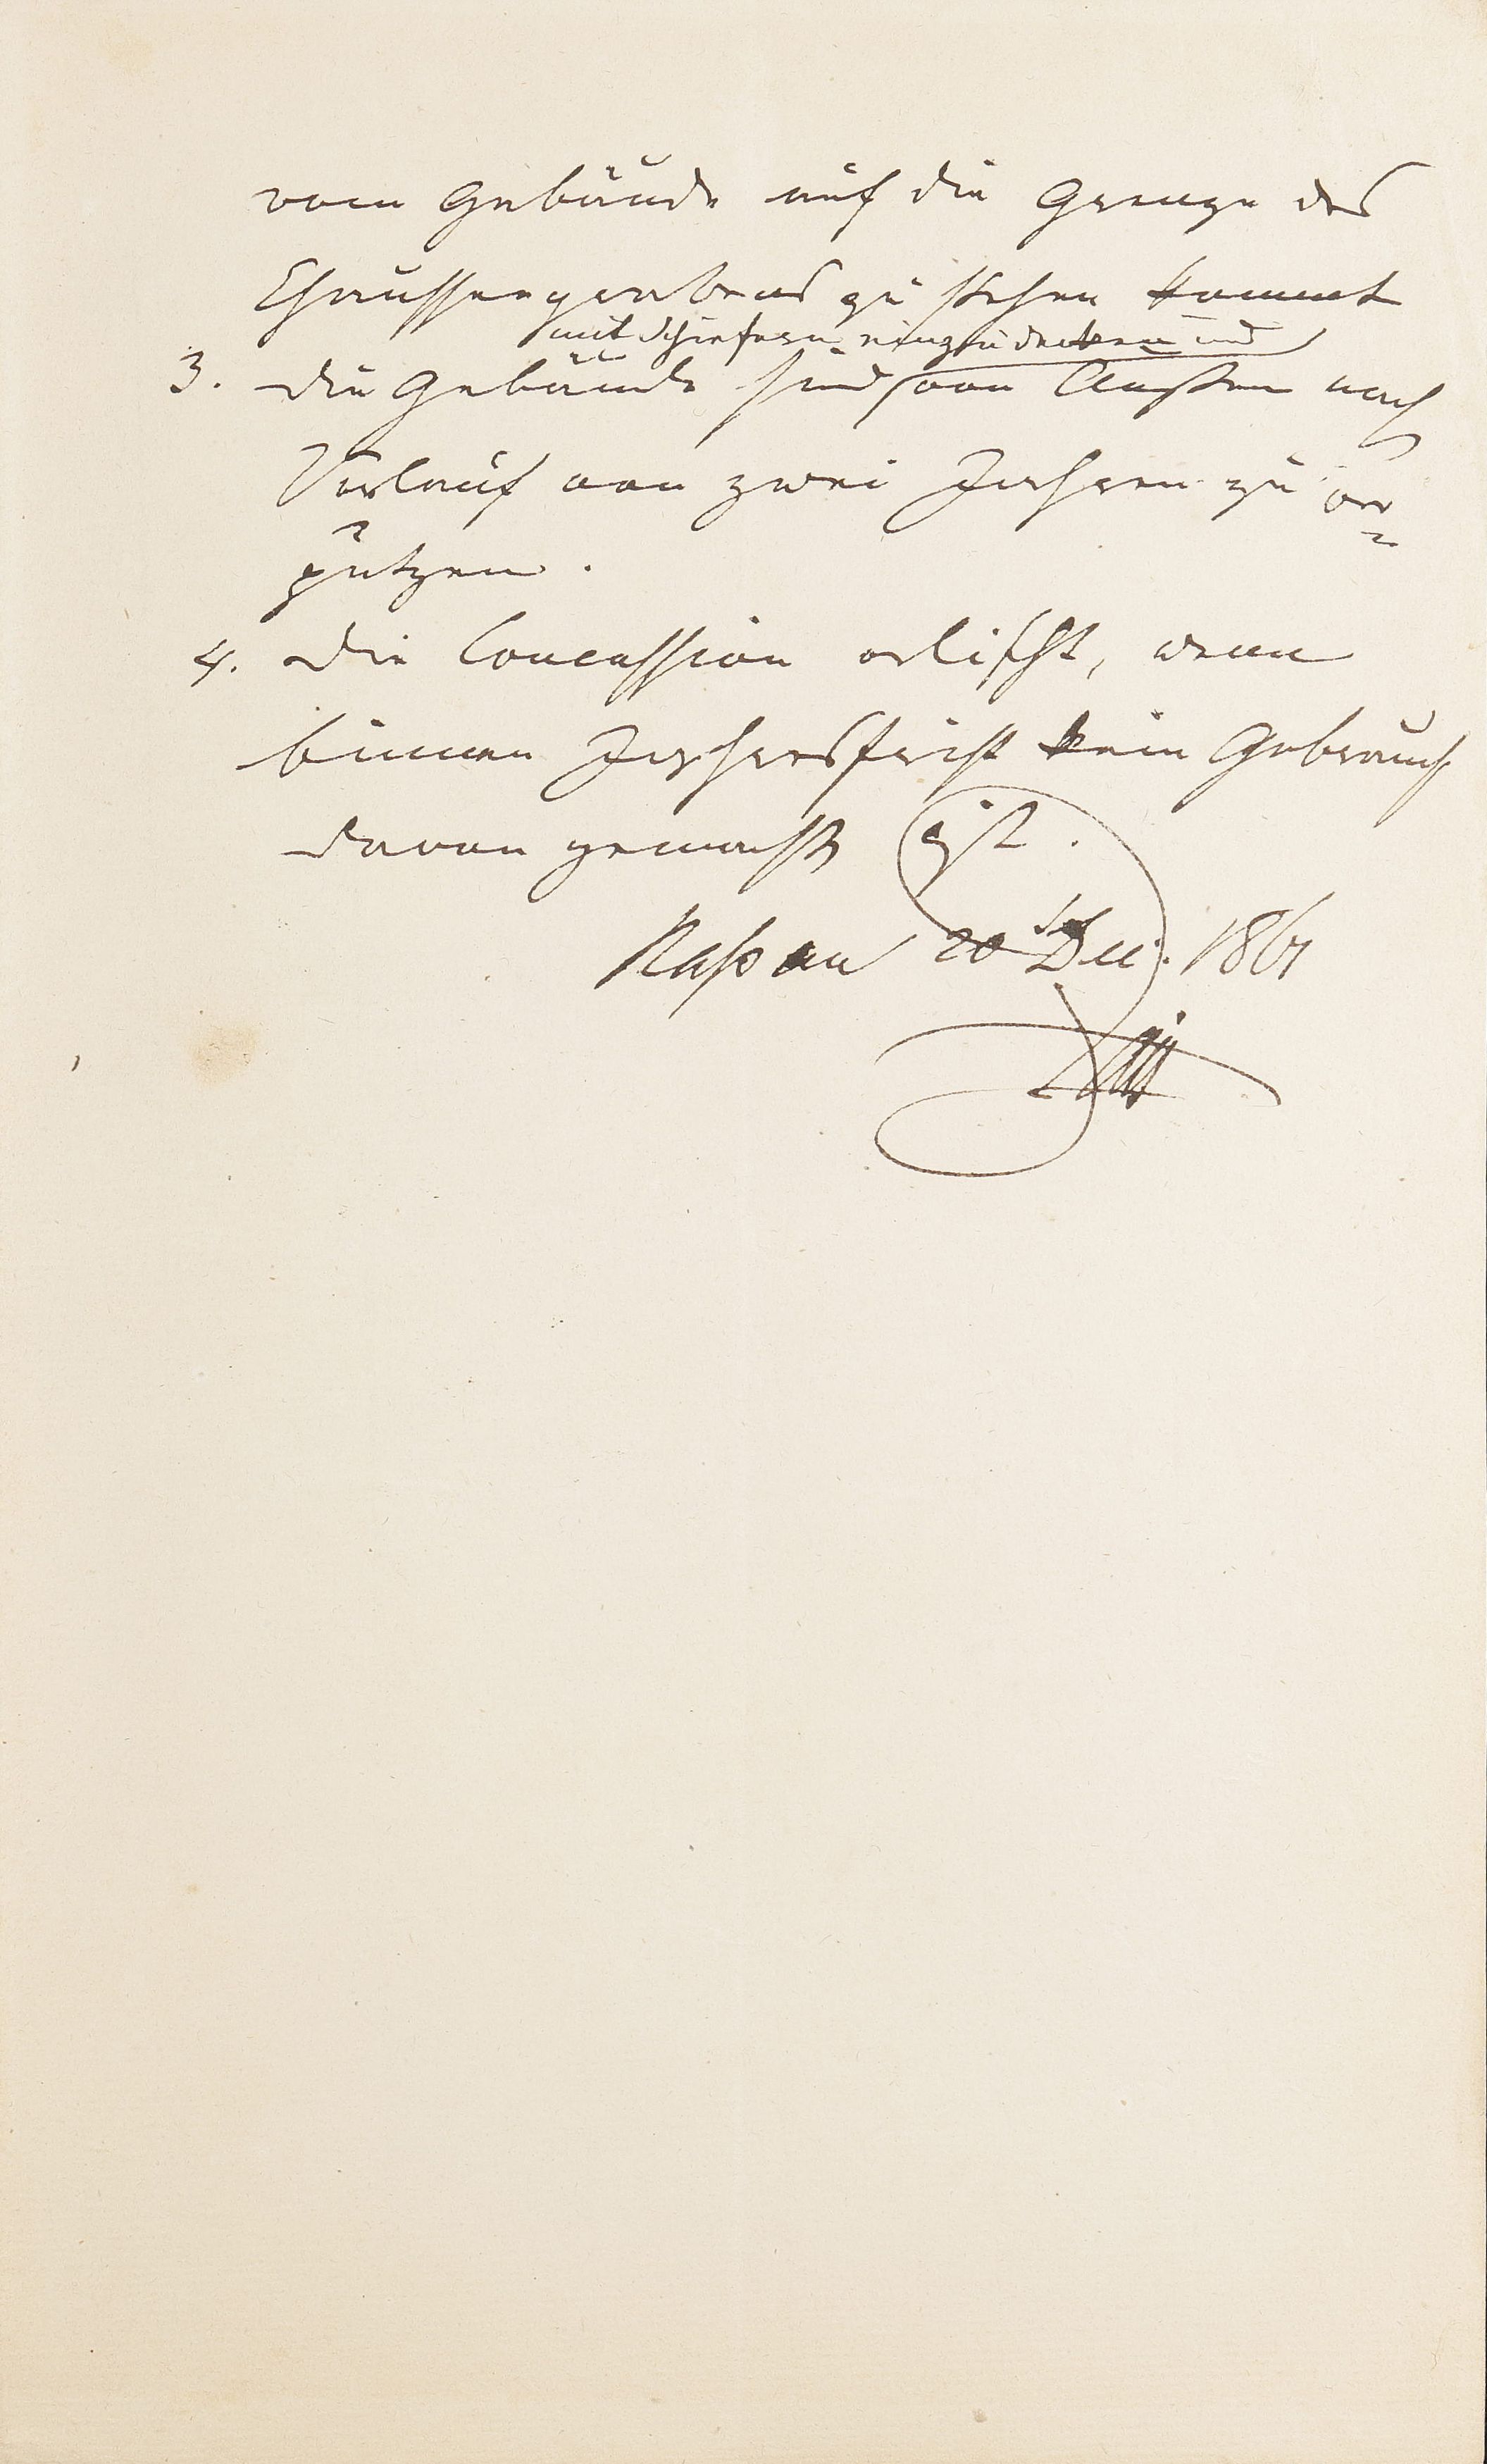 vom Gebäude auf die Grenze des
Chausseegrabens zu stehen kommt
mit Schiefern einzudecken und
3. die Gebäude sind von Außen nach
Verlauf von zwei Jahren zu ver=
putzen.
4. Die Concession erlischt, wenn
binnen Jahresfrist kein Gebrauch
davon gemacht ist.
Naßau 20 Dec. 1861